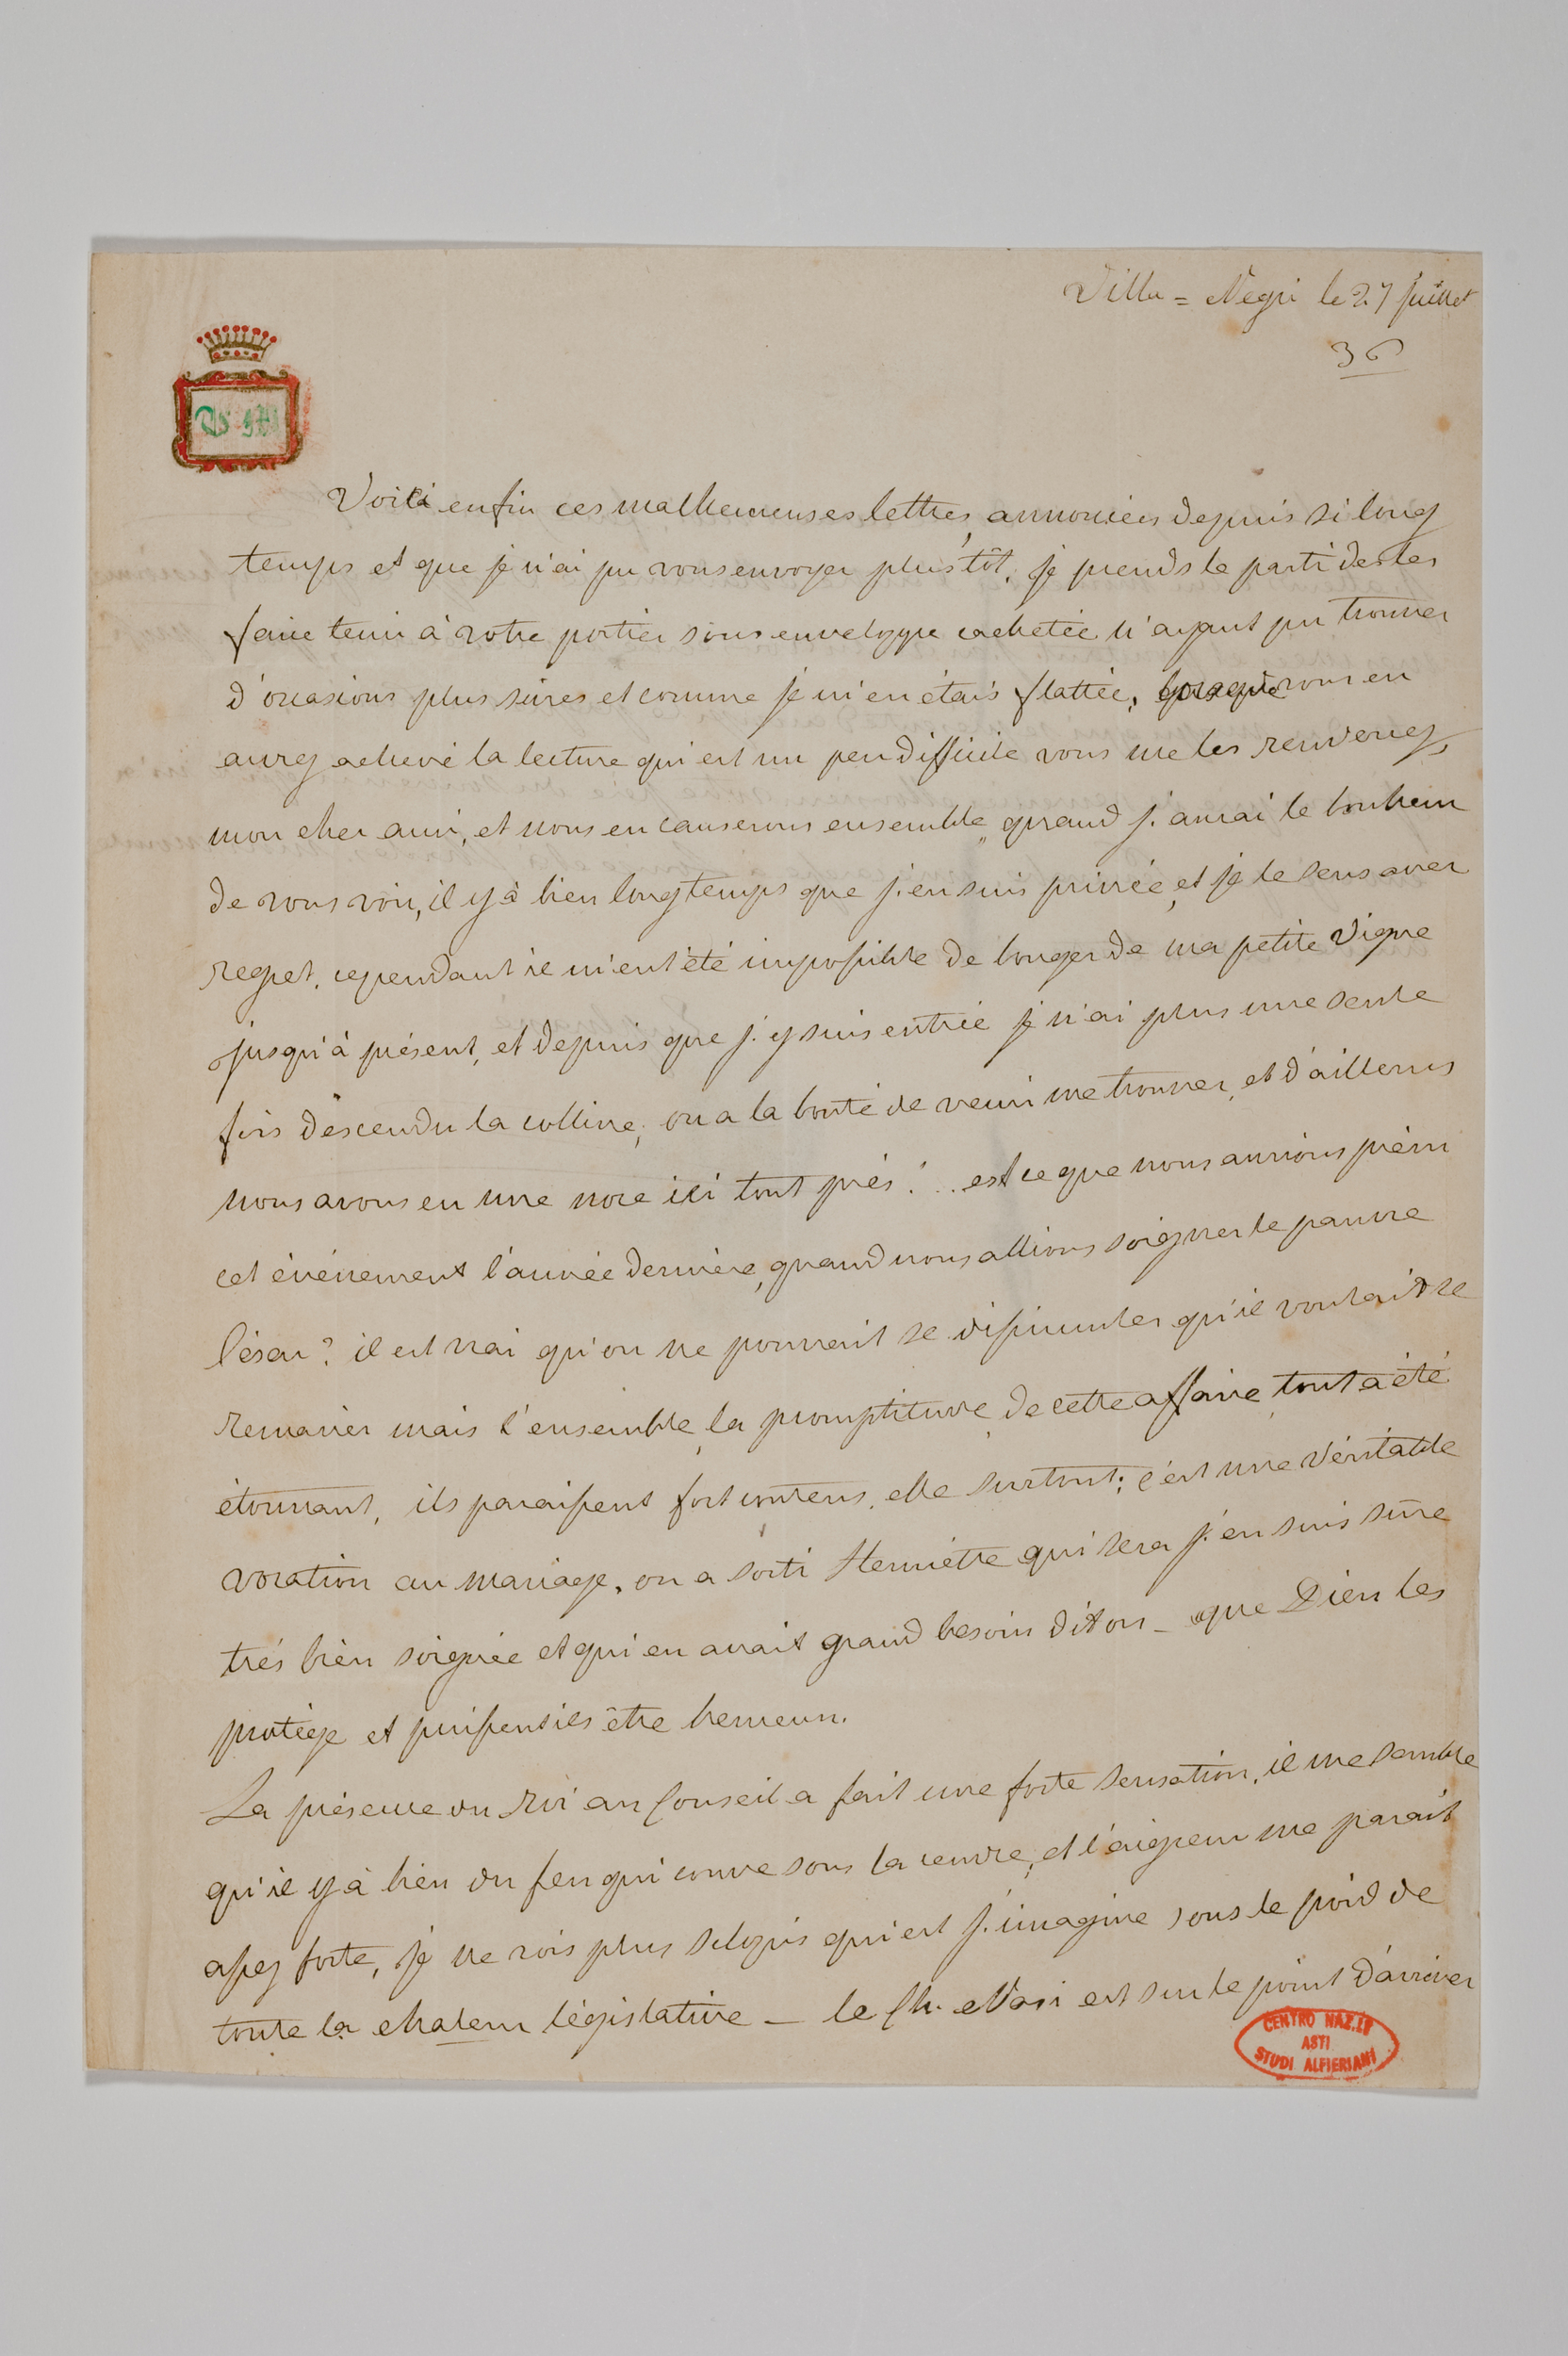 Villa = Negri le 27 juillet
36
Voilà enfin ces malheureuses lettres, annoncées depuis si long
temps et que je n'ai pu vous envoyer plus tôt. je prends le parti de les
faire tenir à votre portier sous enveloppe cachetée n'ayant pu trouver
d'occasions plus sûres et comme je m'en étais flattée, lorsque vous en
aurez achevé la lecture qui est un peu difficile vous me les renverrez,
mon cher ami, et nous en causerons ensemble, quand j'aurai le bonheur
de vous voir, il y à bien longtemps que j'en suis privée, et je le sens avec
regret. cependant il m'eut été impossible de bouger de ma petite Vigne
jusqu'à présent, et depuis que j'y suis entrée je n'ai plus une seule
fois descendu la colline, on a la bonté de venir me trouver, et d'ailleurs
nous avons eu une noce ici tout près! .. est ce que nous aurions prévu
cet événement l'année dernière, quand nous allions soigner le pauvre
César? il est vrai qu'on ne pouvait se dissimuler qu'il voulait se
remarier mais l'ensemble, la promptitude, de cette affaire, tout a été
étonnant, ils paraissent fort contens, elle surtout; c'est une véritable
vocation au mariage. on a sorti Henriette qui sera j'en suis sûre
très bien soignée et qui en avait grand besoin dit on - que Dieu les
protège et puissent ils être heureux.
La présence du Roi au Conseil a fait une forte sensation, il me semble
qu'il y à bien du feu qui couve sous la cendre, et l'aigreur me parait
assez forte, je ne vois plus Sclopis qui est j'imagine sous le poid de
toute la chaleur législative - le Ch. Nasi est sur le point d'arriver
CENTRO NAZ.LE
ASTI
STUDI ALFIERIANI